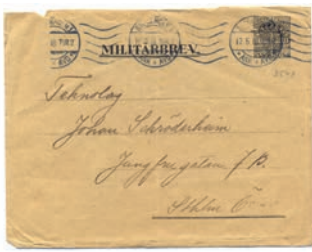 MILITÄRBREV.
Teknolog
Johan Schröderheim
Jungfrugatan 7 B.
Sthlm Ö